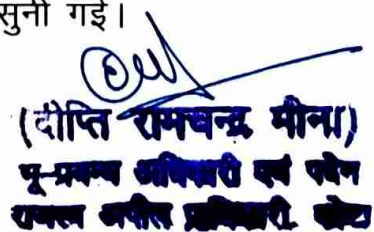 सुनी गई।
(दीप्ति रामचन्द्र मीना)
भू-प्रबन्ध अधिकारी एवं पदेन
राजस्व अपील प्राधिकारी, कोटा